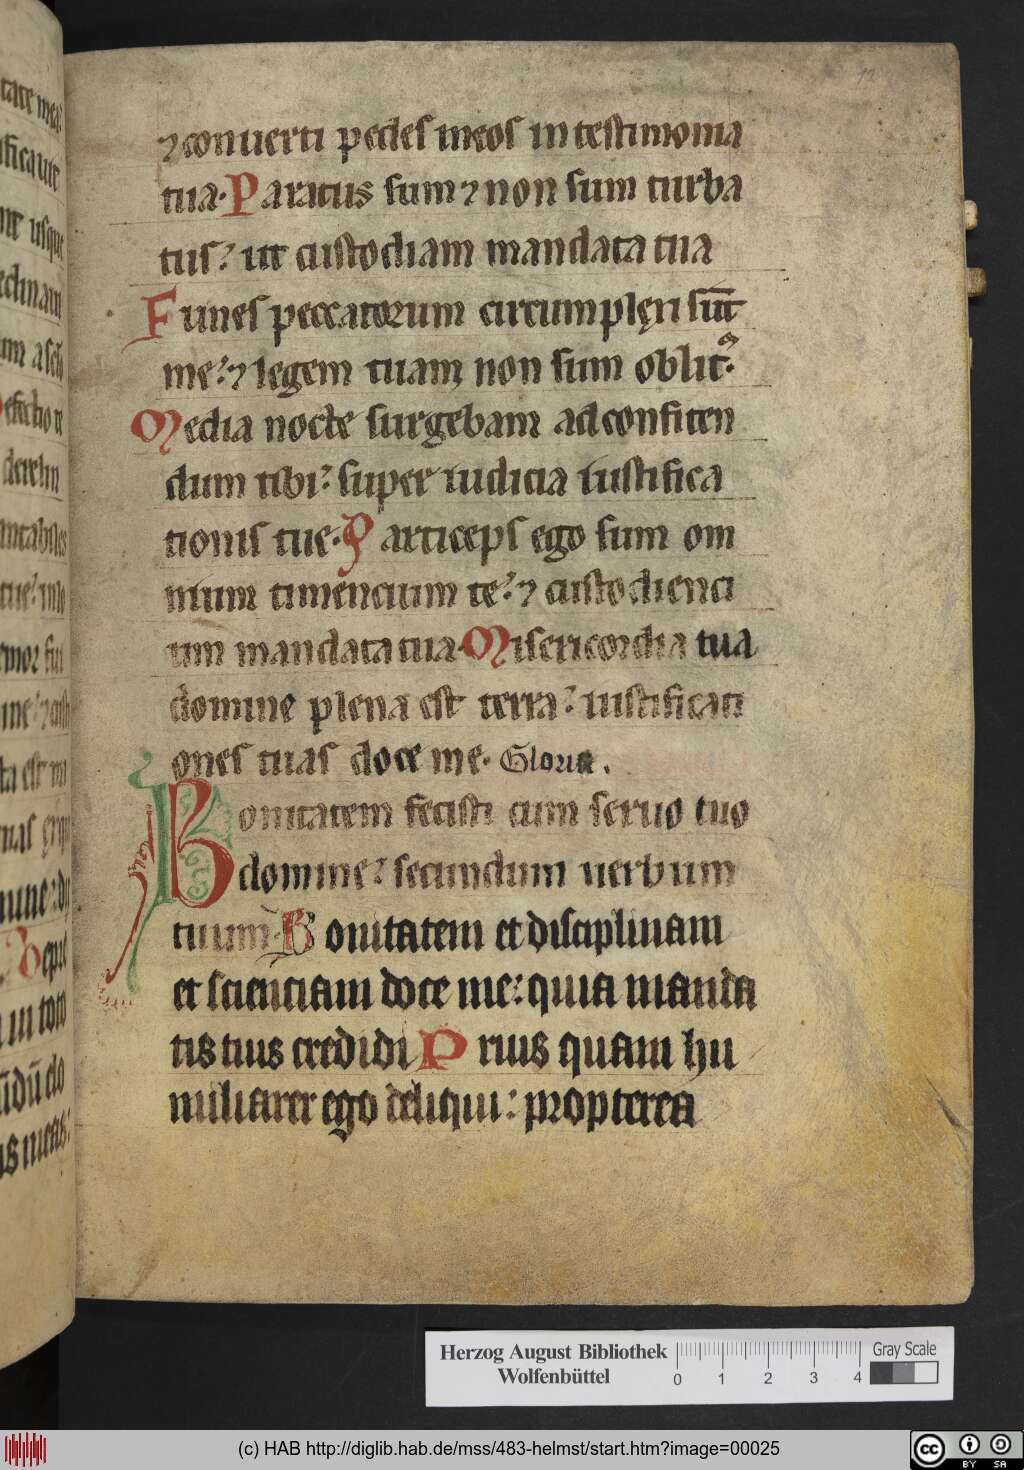 12
⁊ conuerti pedes meos in testimonia
tua. Paratus sum ⁊ non sum turba
tus: ut custodiam mandata tua
Funes peccatorum circumplęxi sūt
me: ⁊ legem tuam non sum oblitꝰ.
Media nocte surgebam ad confiten
dum tibi: super iudicia iustifica
tionis tue. Particeps ego sum om
nium timencium te: ⁊ custodienci
um mandata tua. Misericordia tua
domine plena est terra: iustificati
ones tuas doce me. Gloria.
Bonitatem fecisti cum seruo tuo
domine: secundum uerbum
tuum. Bonitatem et disciplinam
et scienciam doce me: quia manda
tis tuis credidi Prius quam hu
miliarer ego deliqui: propterea
Herzog August Bibliothek
Wolfenbüttel
0 1 2 3 4
Gray Scale
(c) HAB http://diglib.hab.de/mss/483-helmst/start.htm?image=00025
cc BY SA